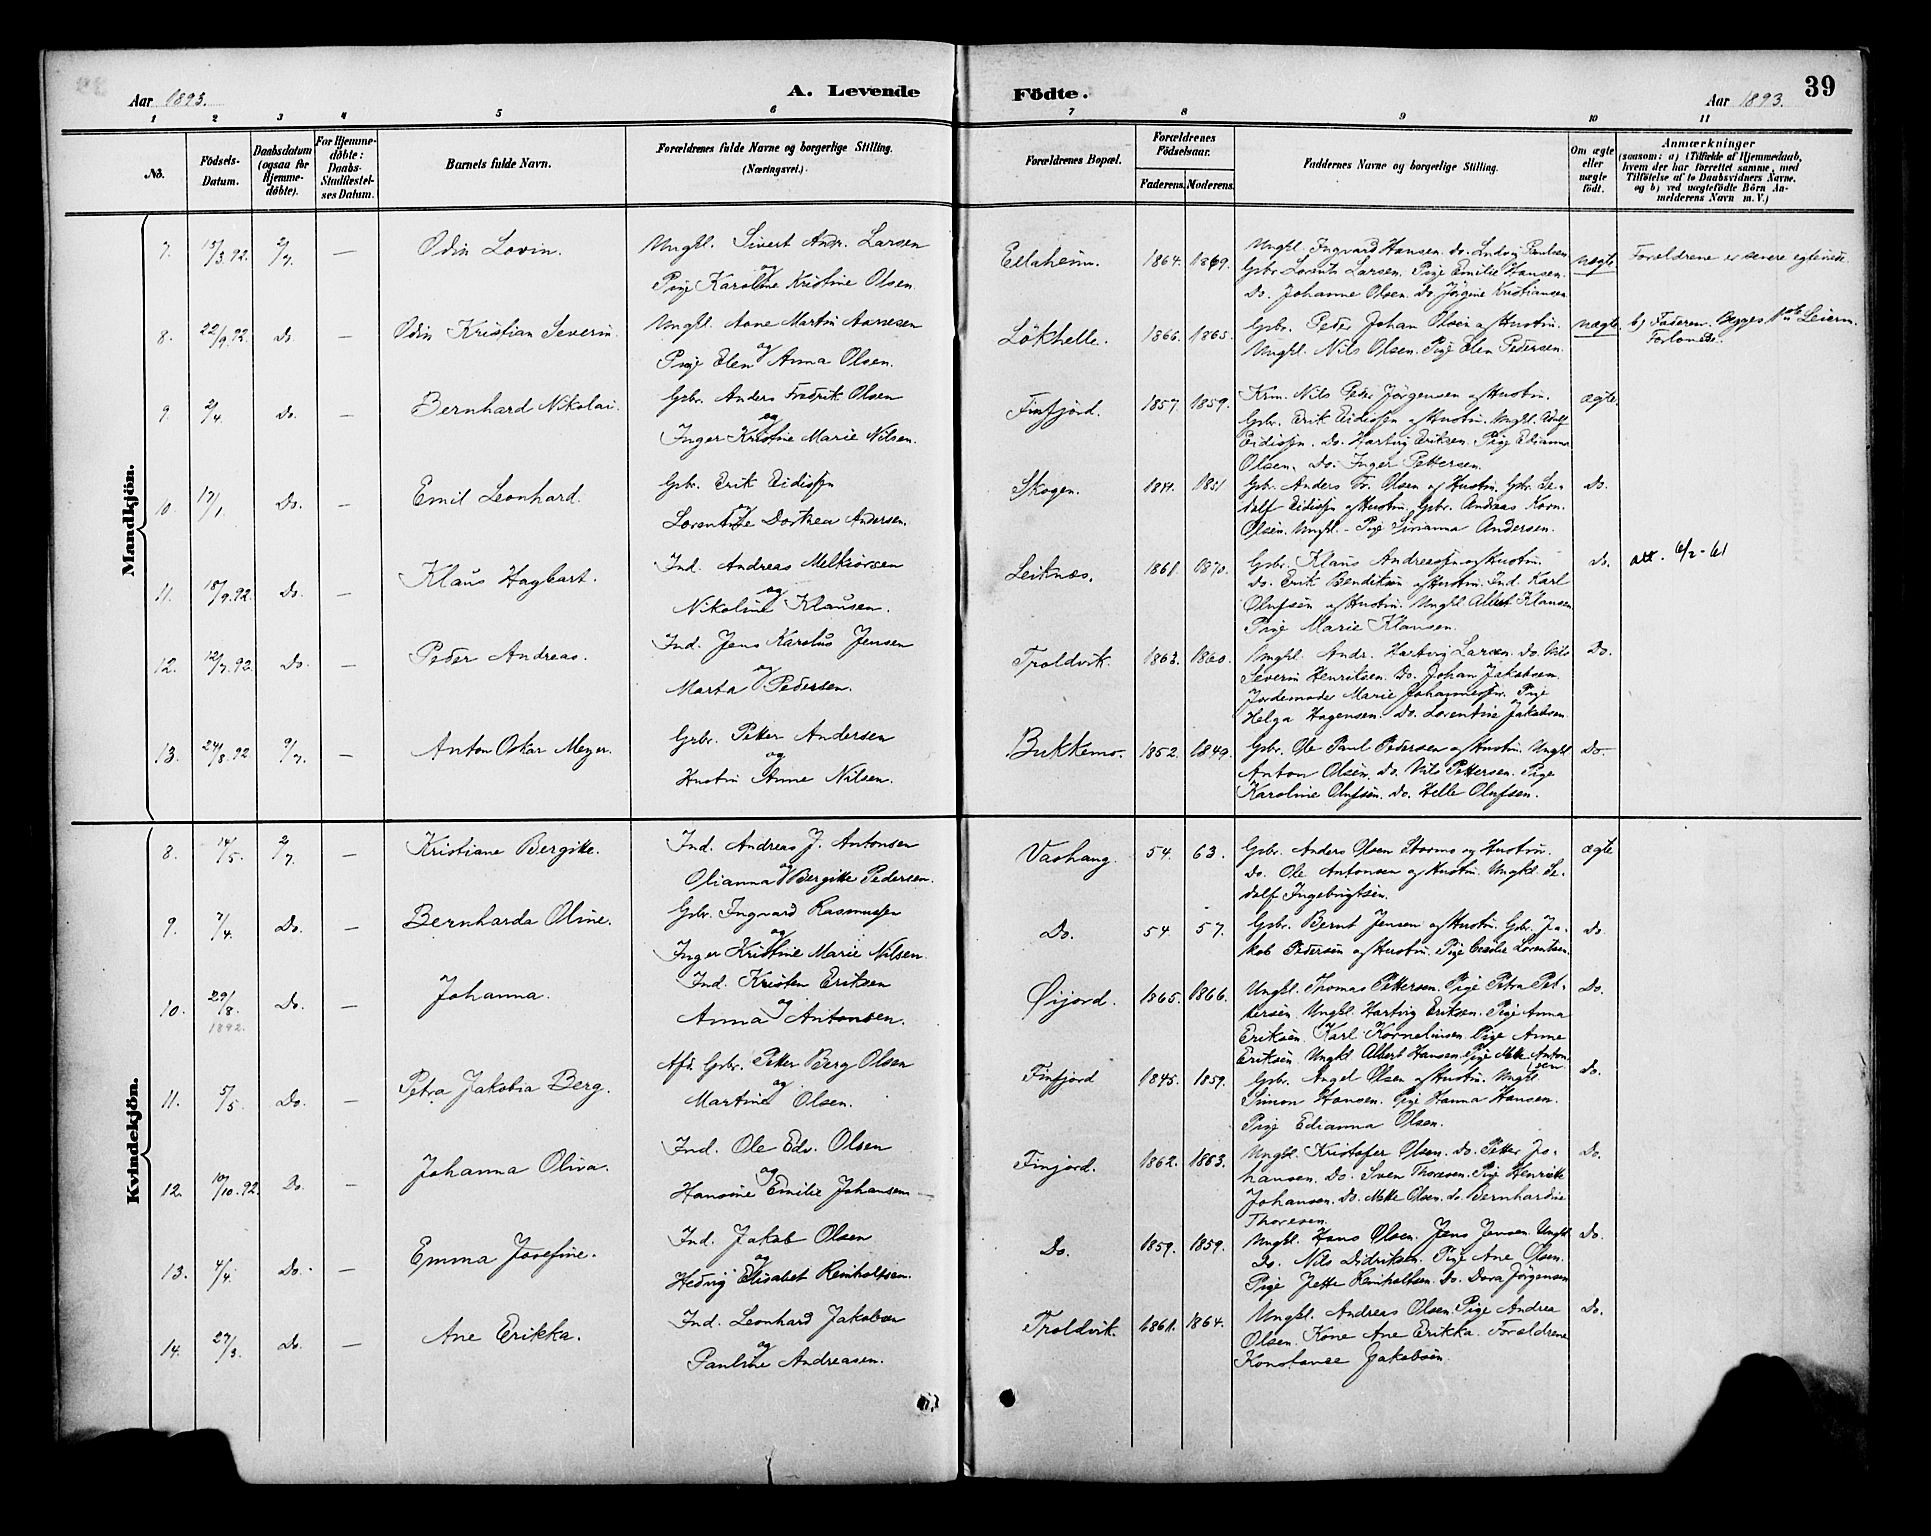 Aar 1893.
A. Levende
Födte.
Aar 1893.
39
1 2 3 4 5 6 7 8 9 10 11
No.
Födsels-Datum.
Daabsdatum (ogsaa for Hjemme-døbte).
For Hjemme-døbte: Daabs-Stadfæstel-ses Datum.
Barnets fulde Navn.
Forældrenes fulde Navne og borgerlige Stilling.
(Næringsvei.)
Forældrenes Bopæl.
Forældrenes Födselsaar.
Faderens. Moderens.
Faddernes Navne og borgerlige Stilling.
Om ægte eller uægte födt.
Anmærkninger
(saasom: a) i Tilfælde af Hjemmedaab, hvem der har forrettet samme, med Tilföielse af to Daabsvidners Navne, og b) ved uægtefödte Börn An-melderens Navn m. V.)
Mandkjön.
7. 15/3.92. 2/7. — Odin Lovin. Ungkl. Sivert Andr. Larsen
og
Pige Karoline Kristine Olsen
Edlaheim. 1864. 1869.
Ungkl. Ingvard Hansen. Do. Ludvig Paulsen
Gbr. Lorents Larsen. Pige Emilie Hansen.
Do. Johanne Olsen. Do. Jørgine Kristiansen
uægte. Forældrene er senere egteviede.
8. 22/9.92. Do. — Odin Kristian Severin. Ungkl. Aone Martin Aarresen
og
Pige Elen Anna Olsen.
Lökhelle. 1866. 1865.
Gbr. Peder Johan Olsen og Hustru.
Ungkl. Nils Olsen. Pige Elen Pedersen.
uægte. b) Faderen. Begges 1ste Leierm.
Forlovede.
9 2/4. Do. — Bernhard Nikolai. Gbr. Anders Fredrik Olsen
og
Inger Kristine Marie Nilsen.
Finfjord. 1857. 1859.
Krm. Nils Peder Jörgensen og Hustru.
Gbr. Erik Eidissen og Hustru. Ungkl. Edolf
Eidissen. Do. Hartvig Eriksen. Pige Edianna
Olsen. Do. Inger Pettersen.
ægte.
10 17/1. Do. — Emil Leonhard. Gbr. Erik Eidissen
og
Lorentze Dorthea Andersen.
Skogen. 1851
Gbr. Anders Fr. Olsen og Hustru. Gbr. Se-
dolf Eidissen og Hustru. Gbr. Andreas Korn.
Olsen. Ungkl. - Pige Sirianna Andersen.
Do.
11. 18/9.92. Do. — Klaus Hagbart. Ind. Andreas Melkiorsen
og
Nikoline Klausen.
Leiknes. 1861. 1870.
Gbr. Klaus Andreassen og Hustru.
Do. Erik Bendiksen og Hustru. Ind. Karl
Olufsen og Hustru. Ungkl. Albert Klausen
Pige Marie Klausen.
Do. att. 6/2-61
12. 12/7.92. Do. — Peder Andreas. Ind. Jens Karolus Jensen
og
Marta Pedersen.
Troldvik. 1863. 1860.
Ungkl. Andr. Hartvig Larsen. Do. Nils
Severin Henriksen. Do. Johan Jakobsen.
Jordemoder Marie Johannessen. Pige
Helga Hagensen. Do. Lorentine Jakobsen.
Do.
13. 24/8.92. 9/7. — Anton Oskar Meyer. Gbr. Petter Andersen
og
Hustru Anne Nilsen.
Bukkemo. 1852. 1849.
Gbr. Ole Paul Pedersen og Hustru. Ungkl.
Anton Olsen. Do. Nils Pettersen. Pige
Karoline Olufsen. Do. Helle Olufsen.
Do.
Kvindekjön.
8. 14/5. 2/7. — Kristiane Bergitte. Ind. Andreas J. Antonsen
og
Olianna Bergitte Pedersen.
Vashaug. 54. 63.
Gbr. Anders Olsen Stormo og Hustru.
Do. Ole Antonsen og Hustru. Ungkl. Se-
dolf Ingebrigtsen.
ægte
9. 7/4. Do. — Bernharda Oline. Gbr. Ingvard Rasmussen
og
Inger Kristine Marie Nilsen.
Do. 54. 57.
Gbr. Bernt Jensen og Hustru. Gbr. Ja-
kob Pedersen og Hustru. Pige Cecilie Lorentsen
Do.
10. 29/8. 1892. Do. — Johanna. Ind. Kristen Eriksen
og
Anna Antonsen.
Øijord. 1865. 1866.
Ungkl. Thomas Pettersen. Pige Petra Pet-
tersen. Ungkl. Hartvig Eriksen. Pige Anna
Eriksen. Karl Korneliusen. Pige Anne
Eriksen. Ungkl. Albert Hansen. Pige Mette Anton-
sen
Do.
11. 5/5. Do. — Petra Jakobia Berg. Afd. Gbr. Petter Berg Olsen
og
Martine Olsen.
Finfjord 1845. 1859.
Gbr. Angel Olsen og Hustru. Ungkl.
Simon Hansen. Pige Hanna Hansen.
Pige Edianna Olsen.
Do.
12. 10/10.92. Do. — Johanna Oliva. Ind. Ole Edv. Olsen
og
Hansine Emilie Johansen
Finjord. 1862. 1863.
Ungkl. Kristofer Olsen. Do. Petter Jo-
hansen. Do. Sven Thoresen. Pige Henrikke
Johansen. Do. Mette Olsen. Do. Bernhardine
Thoresen.
Do.
13. 4/4. Do. — Emma Josefine. Ind. Jakob Olsen
og
Hedvig Elisabet Reinholtsen.
Do. 1859. 1859.
Ungkl. Hans Olsen. Jens Jensen. Ungkl.
Do. Nils Didriksen. Pige Ane Olsen.
Pige Jette Reinholtsen. Do. Dora Jörgensen
Do.
14. 27/3. Do. — Ane Erikka. Ind. Leonhard Jakobsen
og
Pauline Andreasen.
Troldvik. 1861. 1864.
Ungkl. Andreas Olsen. Pige Andrea
Olsen. Kone Ane Erikka. Forældrene
Konstanse Jakobsen.
Do.